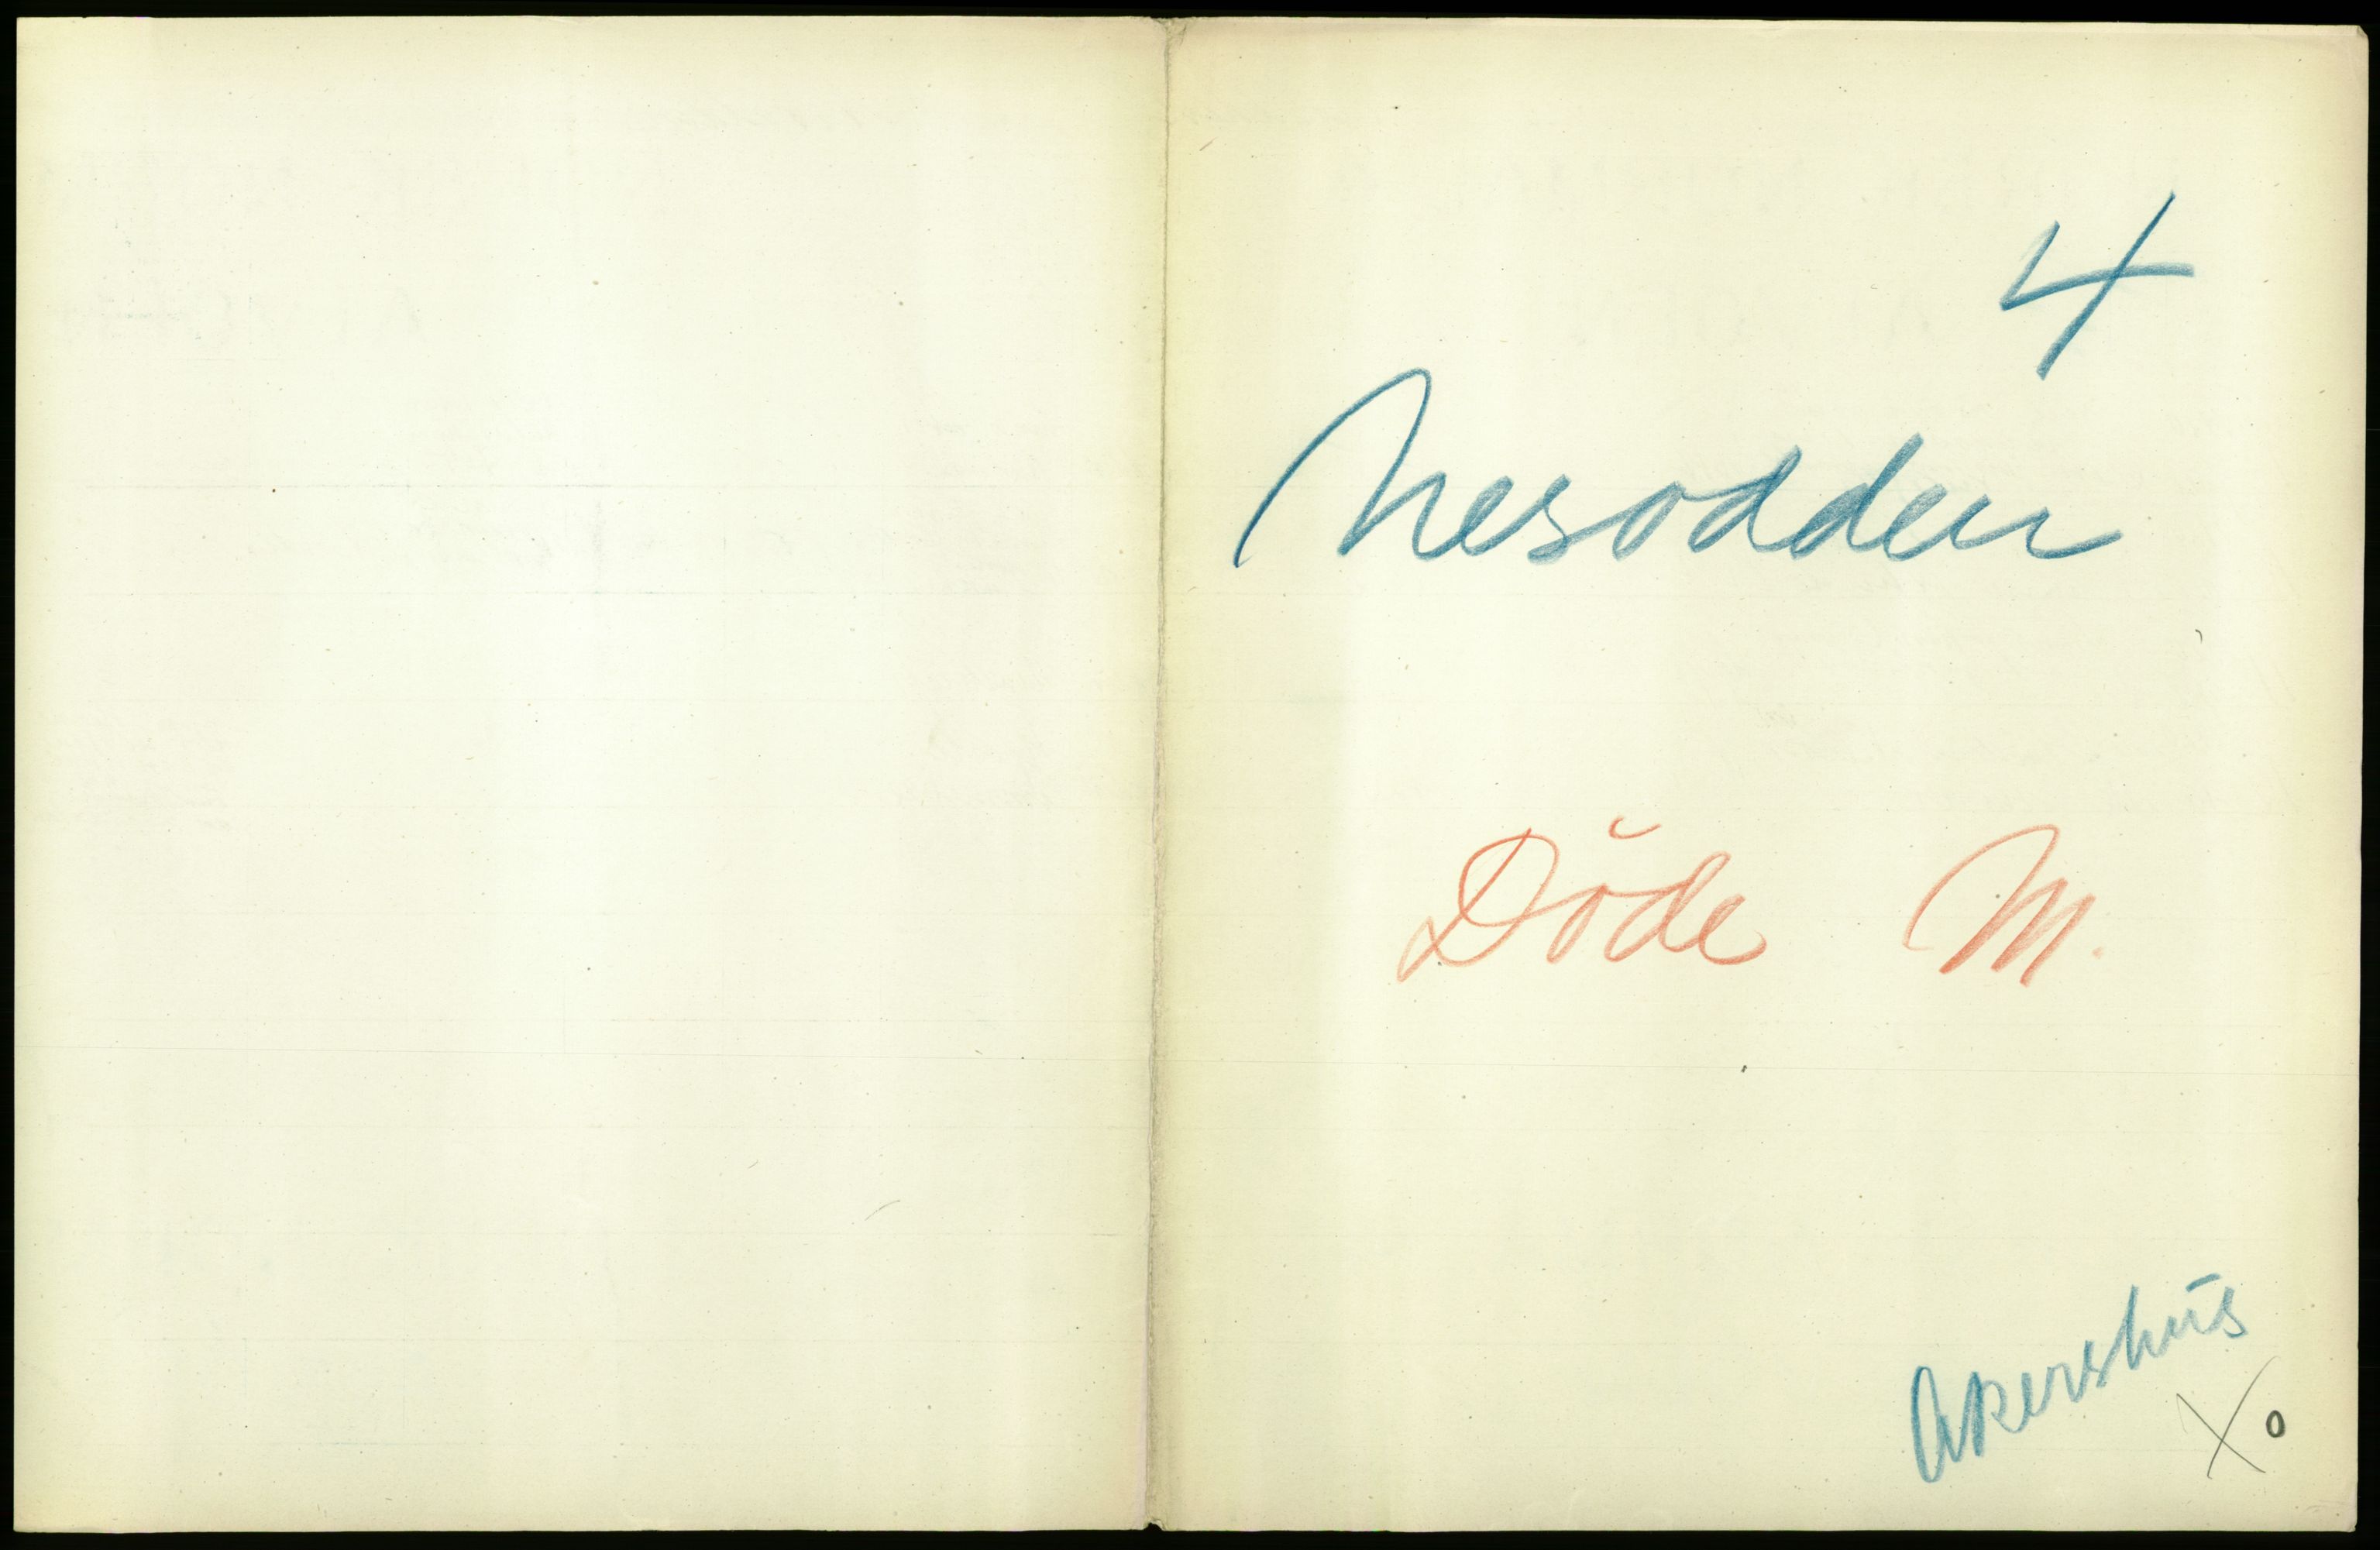 4
Nesodden
Döde M.
Akershus
X 0